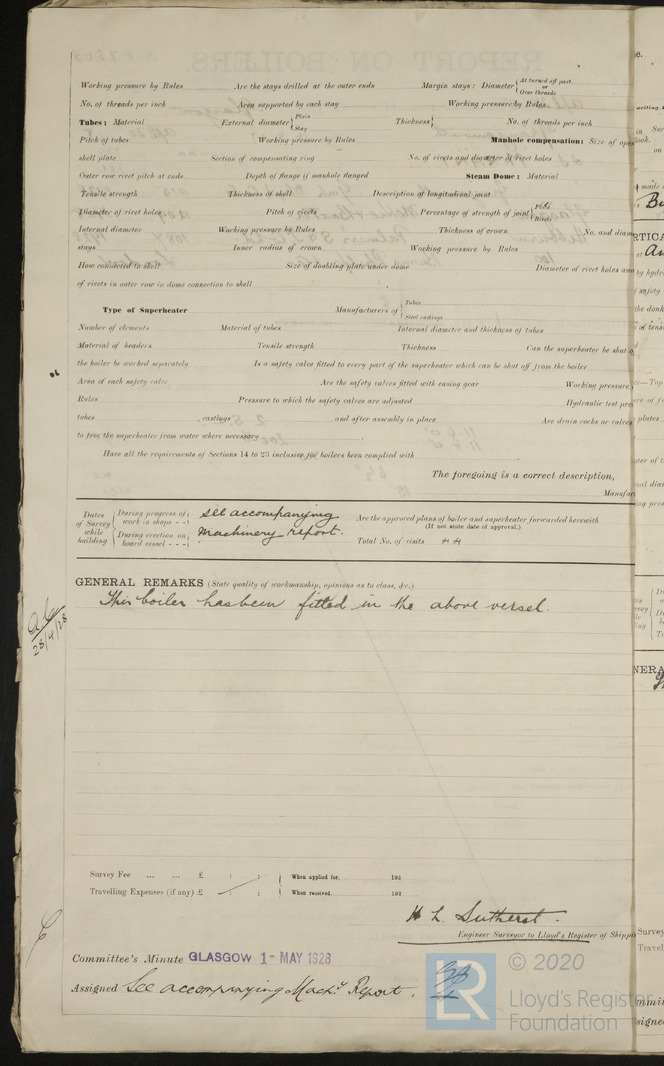 Working pressure by Rules Are the stays drilled at the outer ends Margin stays: Diameter { At turned off part. or Over threads
No. of threads per inch Area supported by each stay Working pressure by Rules
Tubes: Material External diameter { Plain Stay Thickness { No. of threads per inch
Pitch of tubes Working pressure by Rules Manhole compensation: Size of open
shell plate Section of compensating ring No. of rivets and diameter of rivet holes
Outer row rivet pitch at ends Depth of flange if manhole flanged Steam Dome: Material
Tensile strength Thickness of shell Description of longitudinal joint
Diameter of rivet holes Pitch of rivets Percentage of strength of joint { Plate Rivets
Internal diameter Working pressure by Rules Thickness of crown No. and diam
stays Inner radius of crown Working pressure by Rules
How connected to shell Size of doubling plate under dome Diameter of rivet holes an
of rivets in outer row in dome connection to shell
Type of Superheater Manufacturers of { Tubes Steel castings
Number of elements Material of tubes Internal diameter and thickness of tubes
Material of headers Tensile strength Thickness Can the superheater be shut o
the boiler be worked separately Is a safety valve fitted to every part of the superheater which can be shut off from the boiler
Area of each safety valve Are the safety valves fitted with easing gear Working pressure
Rules Pressure to which the safety valves are adjusted Hydraulic test pre
tubes , castings and after assembly in place Are drain cocks or valves
to free the superheater from water where necessary
Have all the requirements of Sections 14 to 23 inclusive for boilers been complied with
The foregoing is a correct description,
Manufac
Dates of Survey while building { During progress of work in shops - - } see accompanying
{ During erection on board vessel - - - } Machinery report.
Are the approved plans of boiler and superheater forwarded herewith
(If not state date of approval.)
Total No. of visits
GENERAL REMARKS (State quality of workmanship, opinions as to class, &c.)
This boiler has been fitted in the above vessel.
28/4/28
Survey Fee ... ... £ : : When applied for, 192
Travelling Expenses (if any) £ : : When received, 192
H L. Sutherst.
Engineer Surveyor to Lloyd's Register of Shippi
Committee's Minute GLASGOW 1 - MAY 1928
Assigned See accompanying Machy Report.
© 2020
LR
Lloyd's Register
Foundation